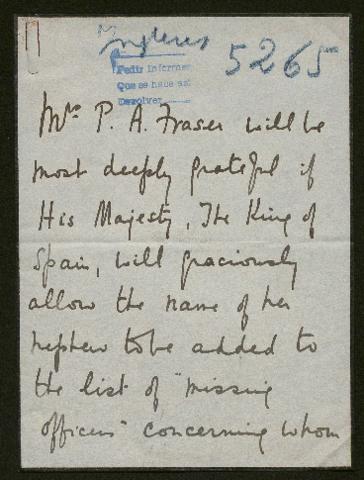 Ingleses 5265
Pedir informes
Que se haga así
Devolver
Mrs P. A. Fraser will be
most deeply grateful if
His Majesty, The King of
Spain, will graciously
allow the name of her
nephew to be added to
the list of "missing
officers" concerning whom